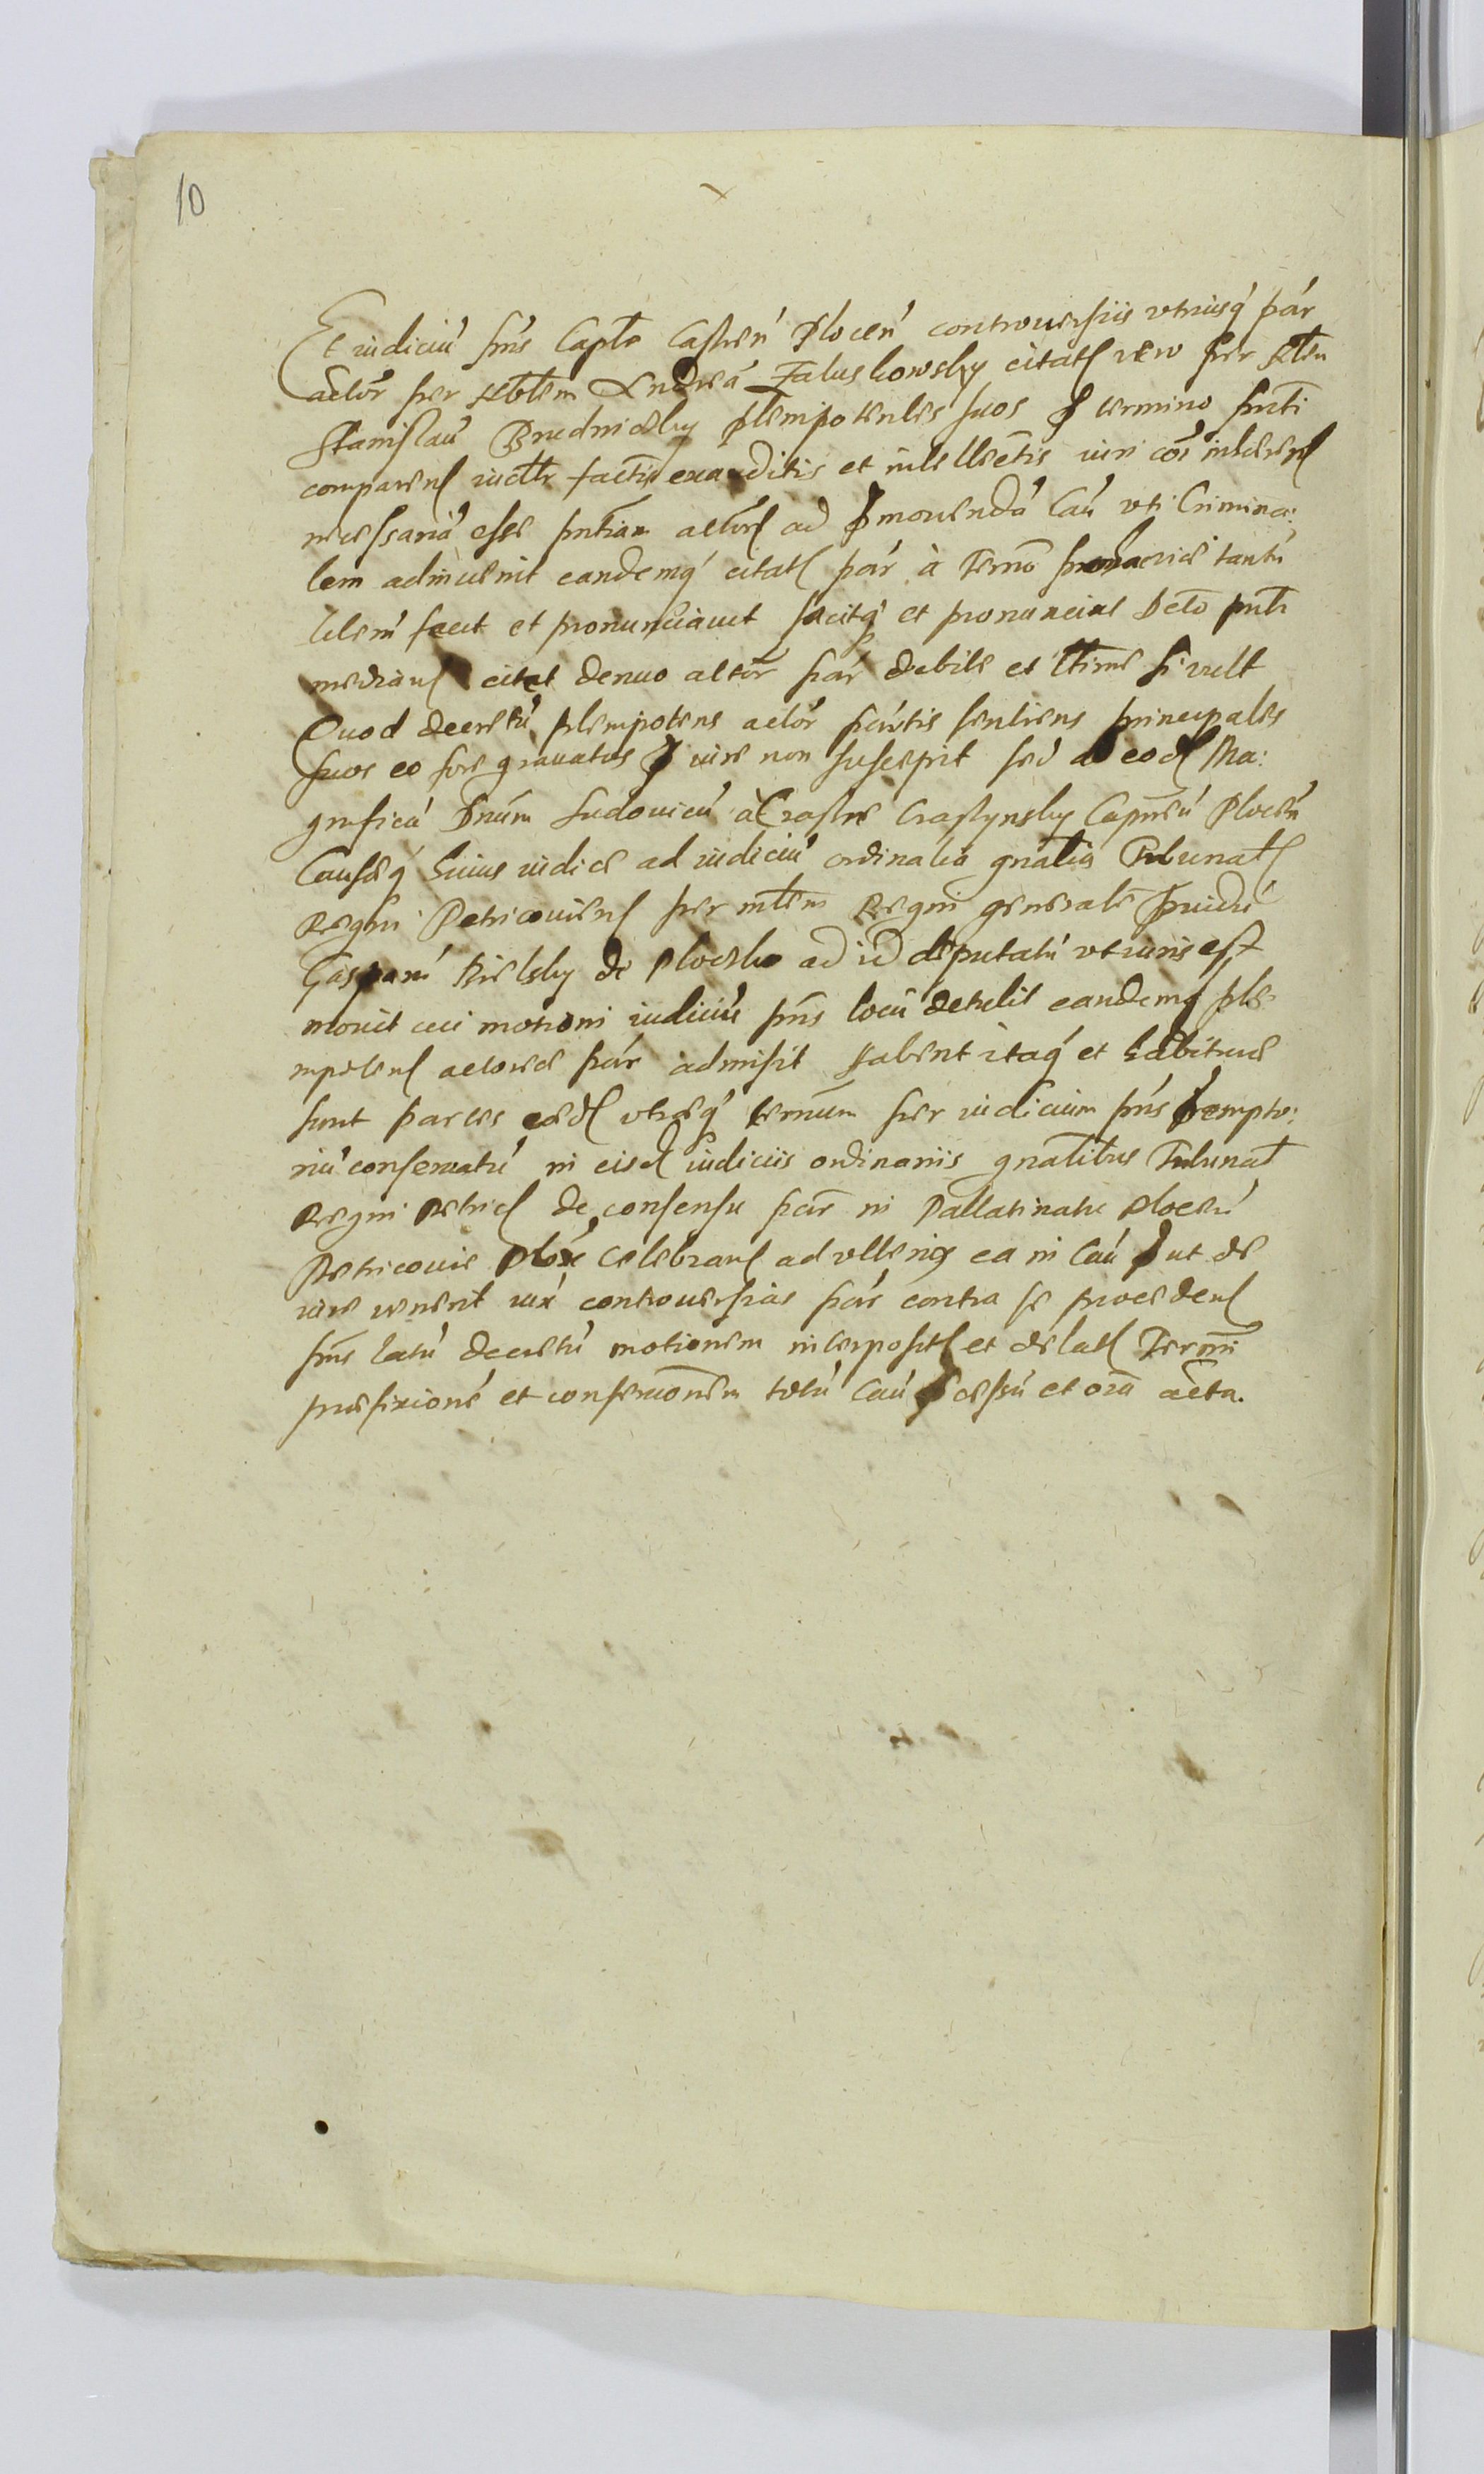 10
Et iudiciu pns Capłe Castren Plocen controuersiis vtriusq par
actor per Nobilem Andrea Zaluskowsky citat vero per Nobilem
Stanislau Brudniczky plenipotentes suos termino pnti
comparen iudicialr factis exauditis et intellectis iuri coi inheren
necessaria esse pntiam actor ad pmouenda Cau vti Crimina:
lem adinuenit eandemq citat par à Termo tantu
libera fecit et pronunciauit facitq et pronunciat Decto pnti
median citet denuo actor par debite et lttime si vult
Quod decretu plenipotens actor partis sentiens principales
suos eo fore grauatos p iure non suscepit sed ab eod Ma:
gnificu Dnum Ludouicu à Crasne Crasynsky Capneu Plocen
Causaeq huius iudice ad iudiciu ordinaria gnalia Tribunal
Regni Petricouien per mtem Regni generale prouidu
Gasparu Bielsky de Ploczko ad id deputatu vt iuris est
mouit cui motioni iudiciu pns locu detulit eandemq ple
nipoten actorea par admisit habent itaq et habiture
sunt partes eaed vtraeq termum per iudicium pns perempto:
riu conseruatu in eisd iudiciis ordinariis gnalibus Tribunal
Regni Petric de consensu par in Pallatinatu Ploceu
Petricouie celebran ad vlteriq ea in Cau put de
iure venerit iux controuersias par contra se proceden
pns latu decretu motionem interposit et delat Termi
praefixione et conseruaonem totu Cau pcessu et oia acta.